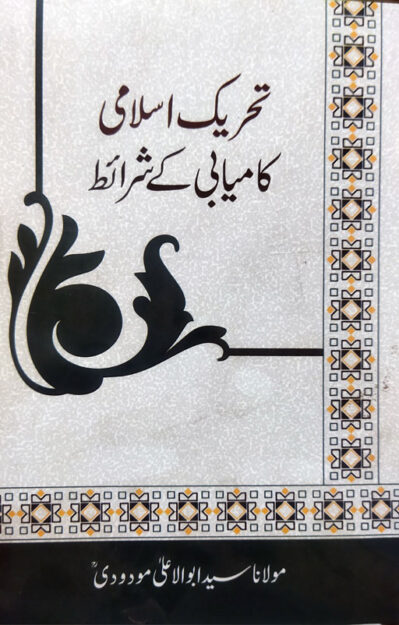 تحریک اسلامی
کامیابی کے شرائط
مولانا سید ابوالاعلیٰ مودودیؒ